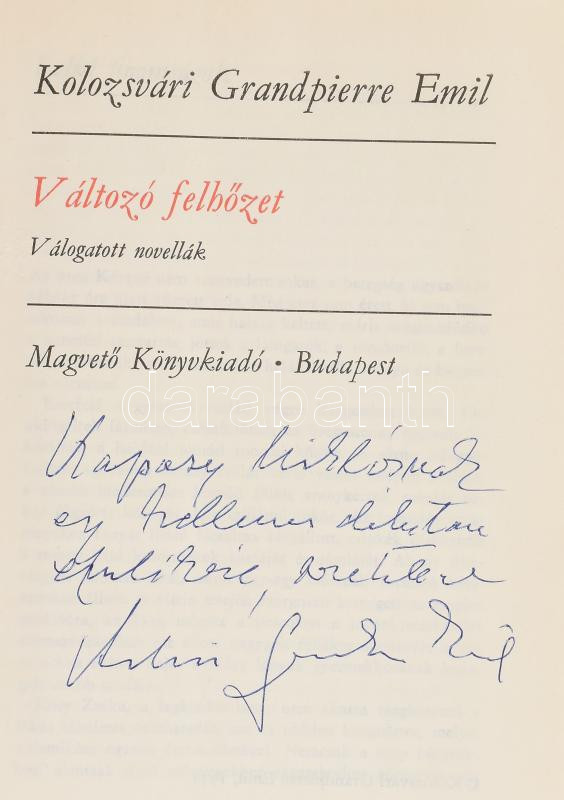 Kolozsvári Grandpierre Emil
Változó felhőzet
Válogatott novellák
Magvető Könyvkiadó • Budapest
darabanth
Kaposy Miklósnak
egy kellemes délután
emlékére, szeretettel
Emil